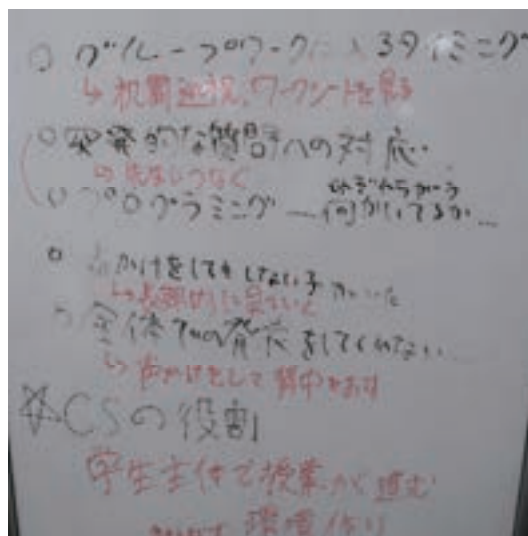 ○ グループワークに入るタイミング
↳ 机間巡視、ワークシートを見る
○ 突発的な質問への対応
の先生につなぐ
○ プログラミング — 何がいてるか…
かけをしてもしない子がいた
↳ 長期的に見ていく
○ 全体での発表をしてくれない…
↳ 声かけをして背中をおす
☆CSの役割
学生主体で授業が進む
環境作り